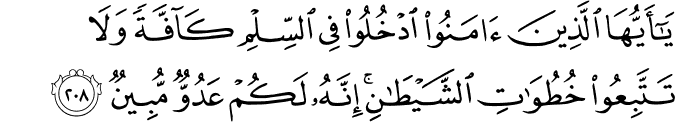 يَـٰٓأَيُّهَا ٱلَّذِينَ ءَامَنُوا۟ ٱدْخُلُوا۟ فِى ٱلسِّلْمِ كَآفَّةً وَلَا
تَتَّبِعُوا۟ خُطُوَٰتِ ٱلشَّيْطَـٰنِ ۚ إِنَّهُۥ لَكُمْ عَدُوٌّ مُّبِينٌ ٢٠٨